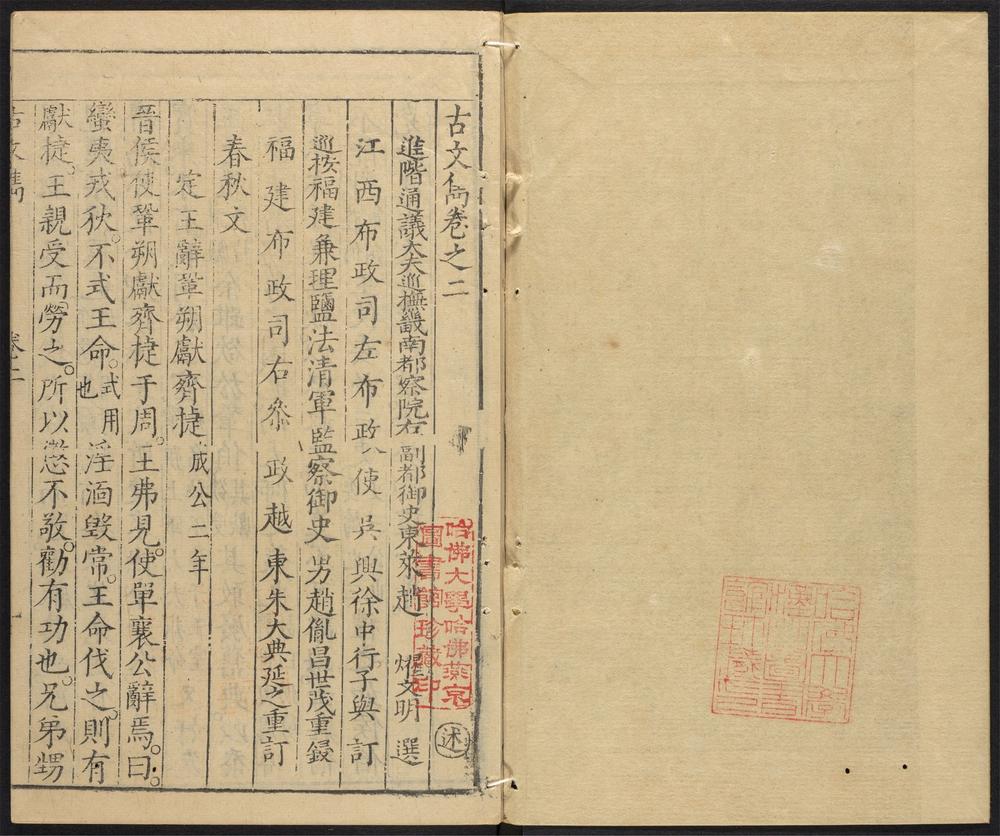 古文雋卷之二
進階通議大夫巡撫畿南都察院右副都御史東萊趙燿文明選
述
江西布政司左布政使吳興徐中行子與訂
巡按福建兼理鹽法清軍監察御史男趙胤昌世茂重鋟
福建布政司右叅政越東朱大典延之重訂
春秋文
定王辭鞏朔獻齊捷成公二年
晉侯使鞏朔獻齊捷于周。王弗見。使單襄公辭焉。曰。
蠻夷戎狄。不式王命。式用也淫湎毀常。王命伐之。則有
獻捷。王親受而勞之。所以懲不敬。勸有功也。兄弟甥
古文雋
卷二
哈佛大學哈佛燕京
圖書館珍藏印